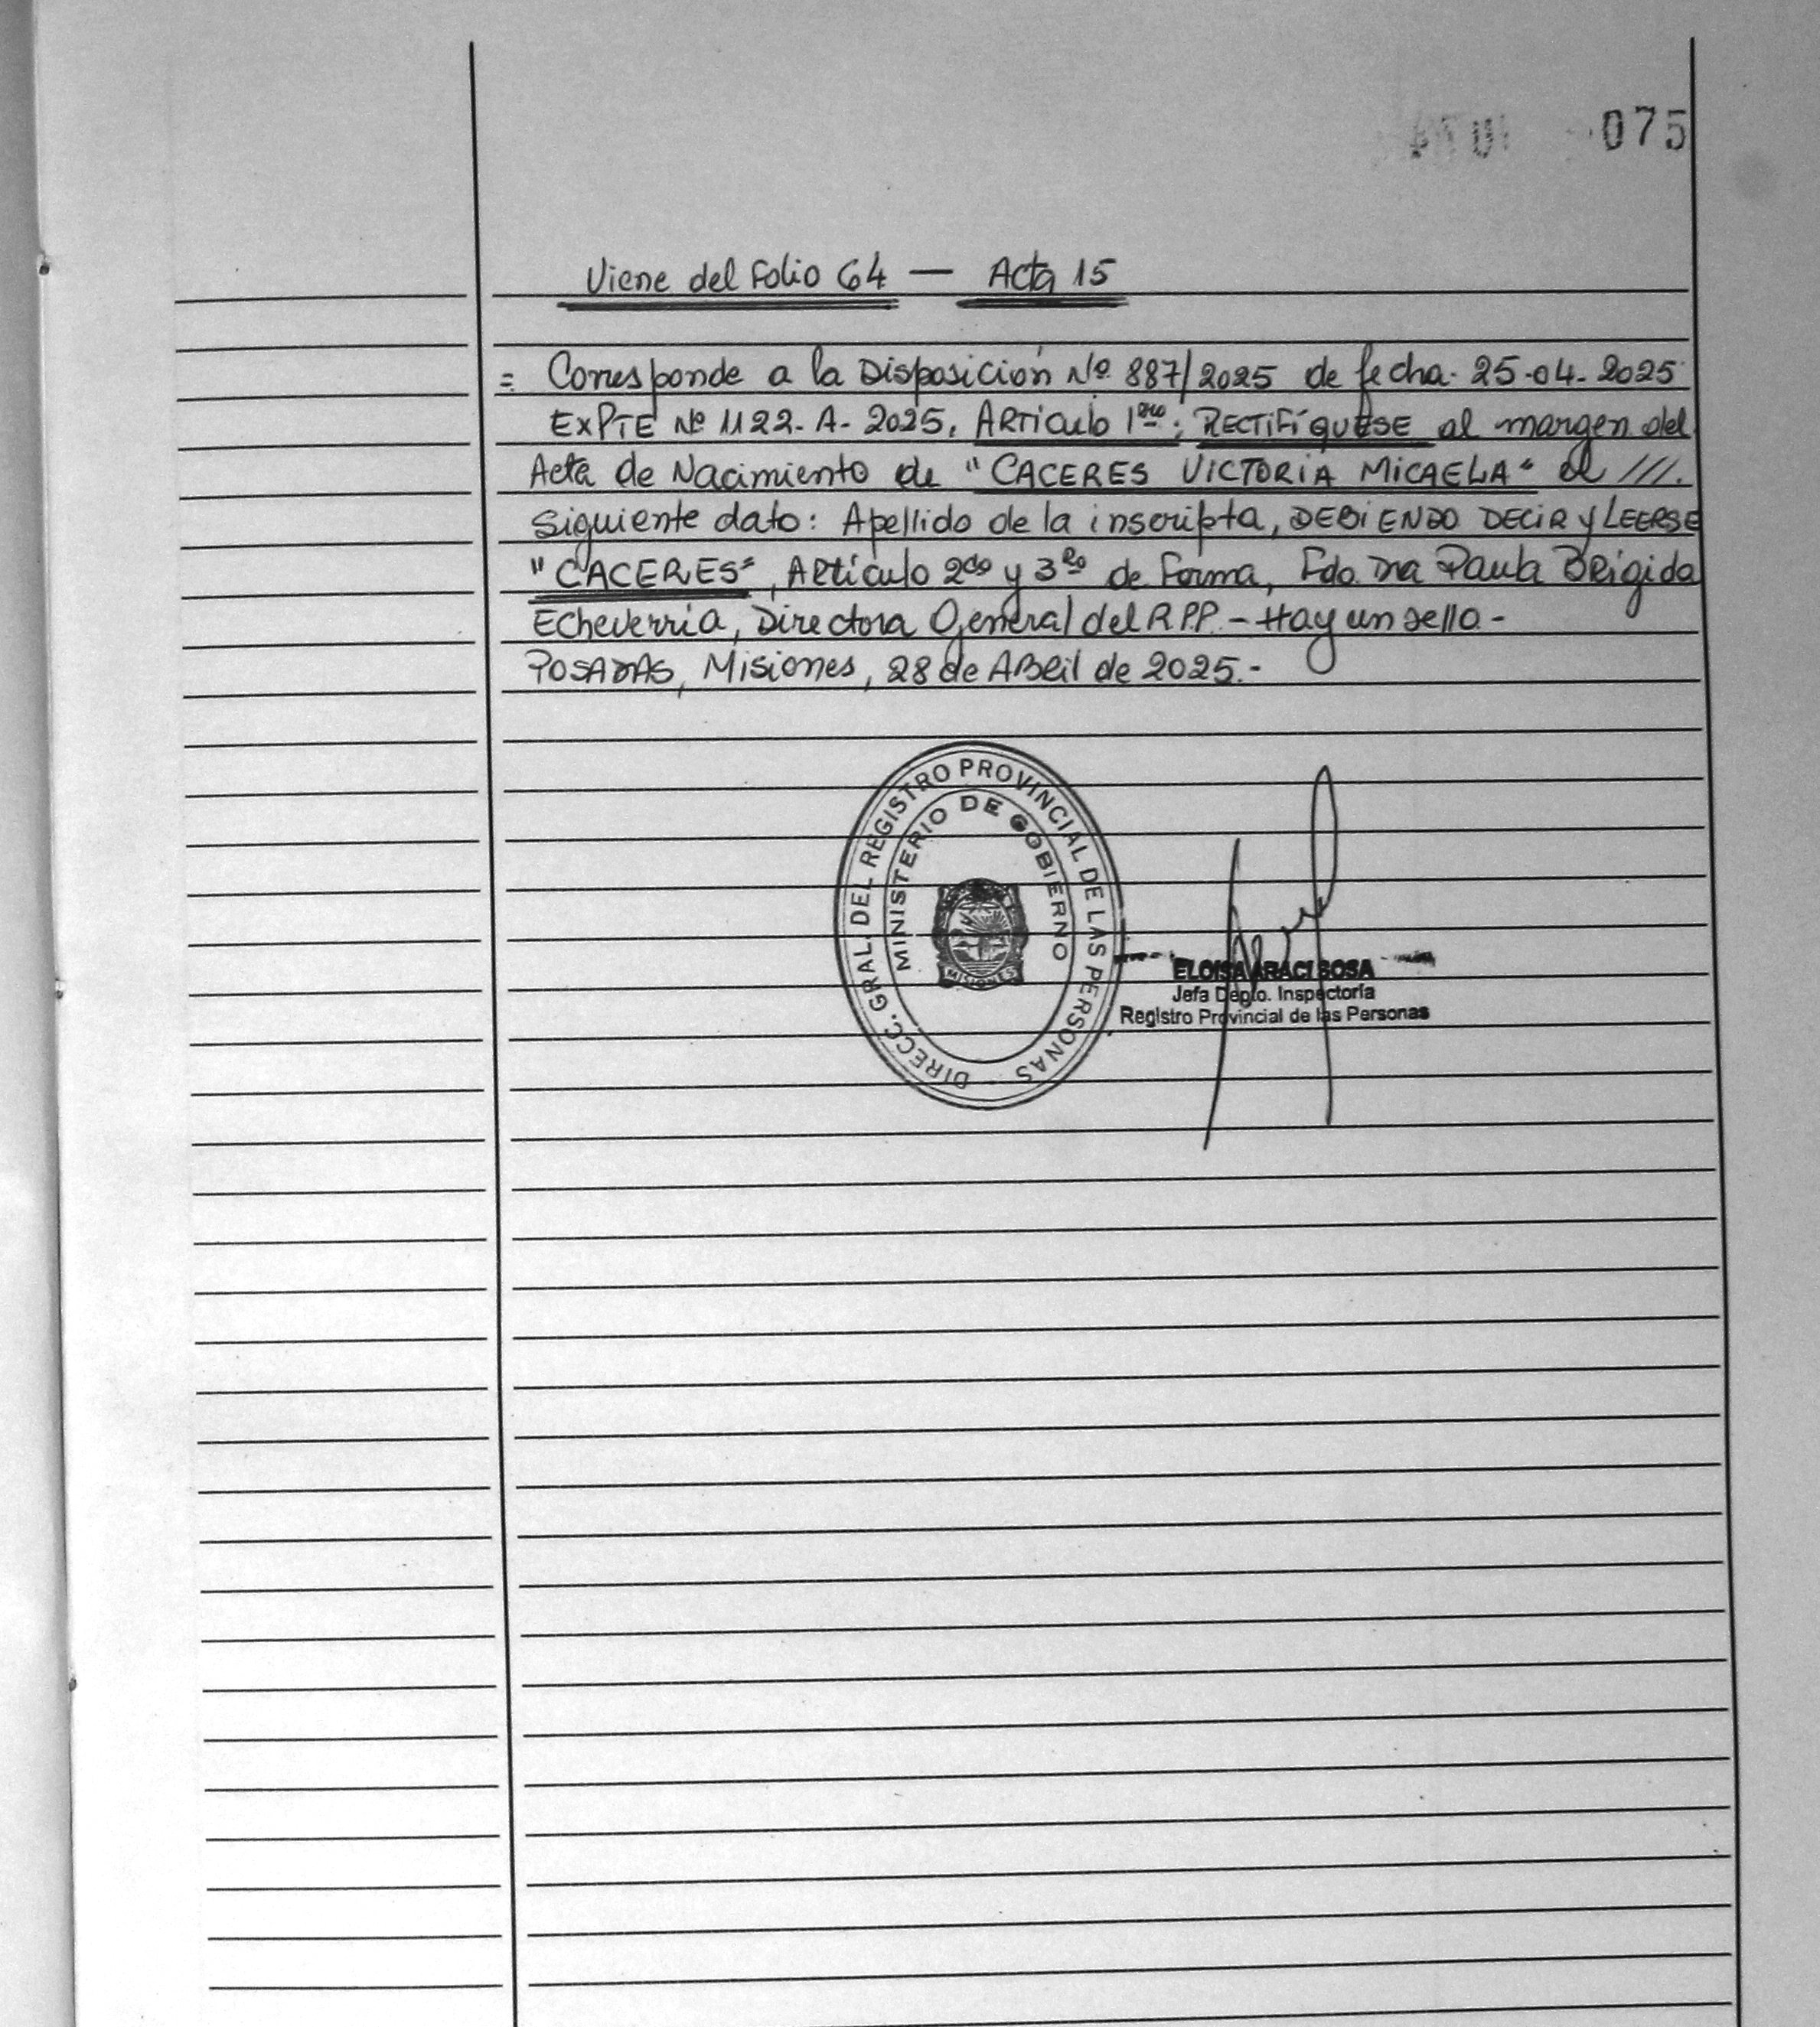 075
Viene del folio 64 — Acta 15
= Corresponde a la Disposición Nº 887/2025 de fecha. 25-04-2025
EXPTE Nº 1122-A-2025. ARTículo 1ero: RECTIFÍQUESE al margen del
Acta de Nacimiento de "CACERES VICTORIA MICAELA" el ///.
siguiente dato: Apellido de la inscripta, DEBIENDO DECIR y LEERSE
"CACERES", Artículo 2do y 3ro de forma, Fdo. Dra Paula Brígida
Echeverría, Directora General del R.P.P. - Hay un sello -
POSADAS, Misiones, 28 de ABRil de 2025.-
DIRECC. GRAL. DEL REGISTRO PROVINCIAL DE LAS PERSONAS
MINISTERIO DE GOBIERNO
MISIONES
ELOISA ARACI SOSA
Jefa Depto. Inspectoría
Registro Provincial de las Personas